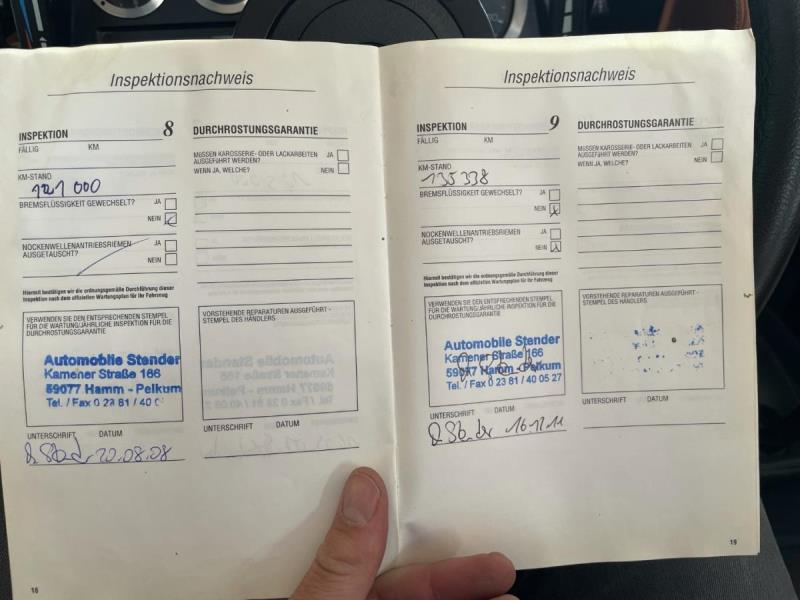 Inspektionsnachweis
INSPEKTION 8
FÄLLIG KM
KM-STAND
121 000
BREMSFLÜSSIGKEIT GEWECHSELT? JA
NEIN
NOCKENWELLENANTRIEBSRIEMEN JA
AUSGETAUSCHT?
NEIN
Hiermit bestätigen wir die ordnungsgemäße Durchführung dieser
Inspektion nach dem offiziellen Wartungsplan für Ihr Fahrzeug
VERWENDEN SIE DEN ENTSPRECHENDEN STEMPEL
FÜR DIE WARTUNG/JÄHRLICHE INSPEKTION FÜR DIE
DURCHROSTUNGSGARANTIE
Automobile Stender
Kamener Straße 166
59077 Hamm - Pelkum
Tel. / Fax 0 23 81 / 40
UNTERSCHRIFT DATUM
20.08.08
DURCHROSTUNGSGARANTIE
MÜSSEN KAROSSERIE- ODER LACKARBEITEN JA
AUSGEFÜHRT WERDEN?
WENN JA, WELCHE? NEIN
VORSTEHENDE REPARATUREN AUSGEFÜHRT -
STEMPEL DES HÄNDLERS
UNTERSCHRIFT DATUM
18
Inspektionsnachweis
INSPEKTION 9
FÄLLIG KM
KM-STAND
135 338
BREMSFLÜSSIGKEIT GEWECHSELT? JA
NEIN
NOCKENWELLENANTRIEBSRIEMEN JA
AUSGETAUSCHT?
NEIN
Hiermit bestätigen wir die ordnungsgemäße Durchführung dieser
Inspektion nach dem offiziellen Wartungsplan für Ihr Fahrzeug
VERWENDEN SIE DEN ENTSPRECHENDEN STEMPEL
FÜR DIE WARTUNG/JÄHRLICHE INSPEKTION FÜR DIE
DURCHROSTUNGSGARANTIE
Automobile Stender
Kamener Straße 166
59077 Hamm - Pelkum
Tel. / Fax 0 23 81 / 40 05 27
UNTERSCHRIFT DATUM
16.12.11
DURCHROSTUNGSGARANTIE
MÜSSEN KAROSSERIE- ODER LACKARBEITEN JA
AUSGEFÜHRT WERDEN?
WENN JA, WELCHE? NEIN
VORSTEHENDE REPARATUREN AUSGEFÜHRT -
STEMPEL DES HÄNDLERS
UNTERSCHRIFT DATUM
19